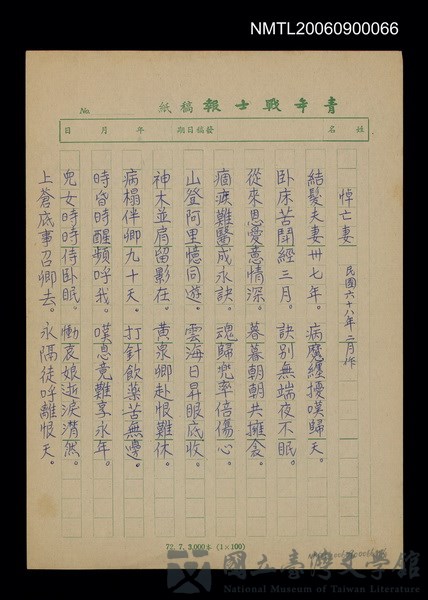 NMTL20060900066
青年戰士報稿紙
No
姓名
發稿日期
年
月
日
悼亡妻 民國六十八年二月作
結髮夫妻卅七年。病魔纏擾嘆歸天。
臥床苦鬥經三月。訣別無端夜不眠。
從來恩愛意情深。暮暮朝朝共擁衾。
痼疾難醫成永訣。魂歸兜率倍傷心。
山登阿里憶同遊。雲海日昇眼底收。
神木並肩留影在。黃泉卿赴恨難休。
病榻伴卿九十天。打針飲藥苦無邊。
時昏時醒頻呼我。嘆息竟難享永年。
兒女時時侍臥眠。慟哀娘逝淚潸然。
上蒼底事召卿去。永隔徒呼離恨天。
72.7.3,000本(1×100)
國立臺灣文學館
National Museum of Taiwan Literature